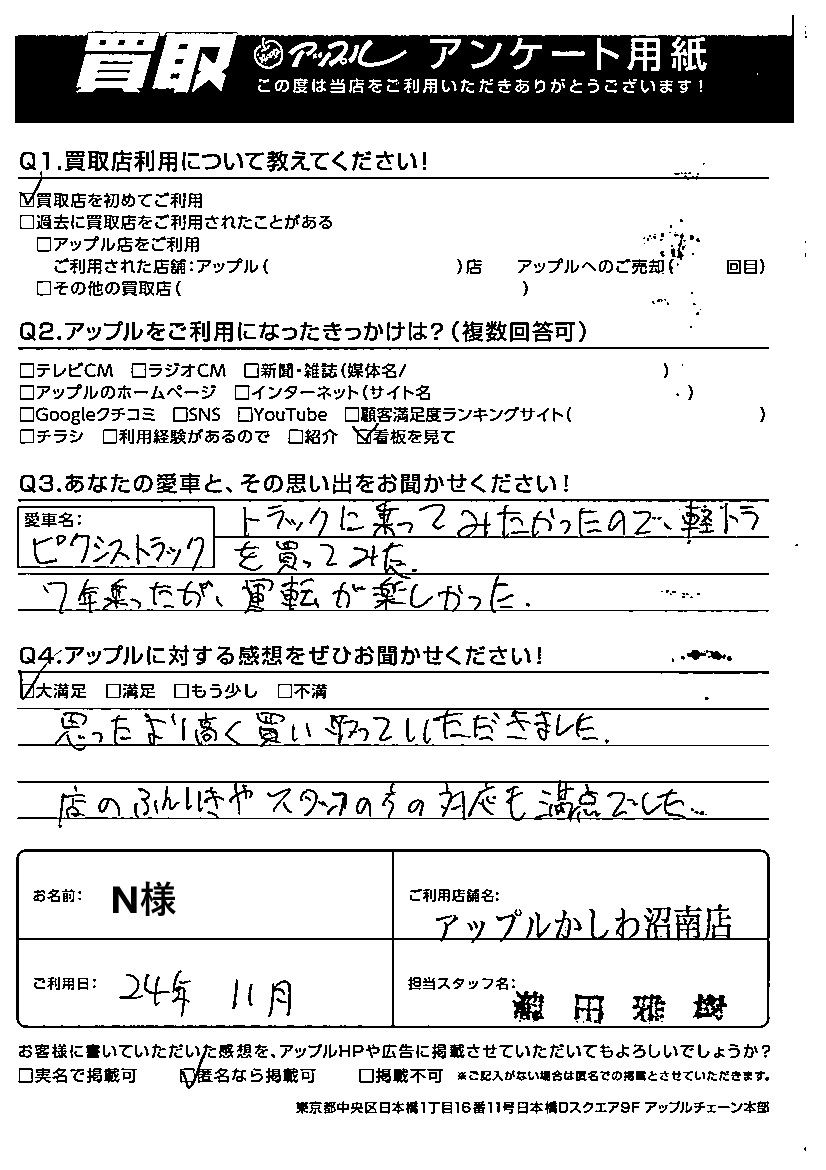 買取 アップル アンケート用紙
この度は当店をご利用いただきありがとうございます!
Q1.買取店利用について教えてください!
☑買取店を初めてご利用
□過去に買取店をご利用されたことがある
□アップル店をご利用
ご利用された店舗:アップル( )店 アップルへのご売却( 回目)
□その他の買取店( )
Q2.アップルをご利用になったきっかけは?(複数回答可)
□テレビCM □ラジオCM □新聞・雑誌(媒体名/ )
□アップルのホームページ □インターネット(サイト名 )
□Googleクチコミ □SNS □YouTube □顧客満足度ランキングサイト( )
□チラシ □利用経験があるので □紹介 ☑看板を見て
Q3.あなたの愛車と、その思い出をお聞かせください!
愛車名:
ピクシストラック
トラックに乗ってみたかったので、軽トラ
を買ってみた.
7年乗ったが、運転が楽しかった.
Q4.アップルに対する感想をぜひお聞かせください!
☑大満足 □満足 □もう少し □不満
思ったより高く買い取っていただきました.
店のふんいきやスタッフの方の対応も満点でした.
お名前: N様
ご利用店舗名:
アップルかしわ沼南店
ご利用日: 24年 11月
担当スタッフ名:
田 雅 樹
お客様に書いていただいた感想を、アップルHPや広告に掲載させていただいてもよろしいでしょうか?
□実名で掲載可 ☑匿名なら掲載可 □掲載不可 ※ご記入がない場合は匿名での掲載とさせていただきます。
東京都中央区日本橋1丁目16番11号日本橋Dスクエア9F アップルチェーン本部